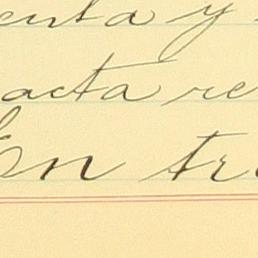 enta y
acta re
En tre